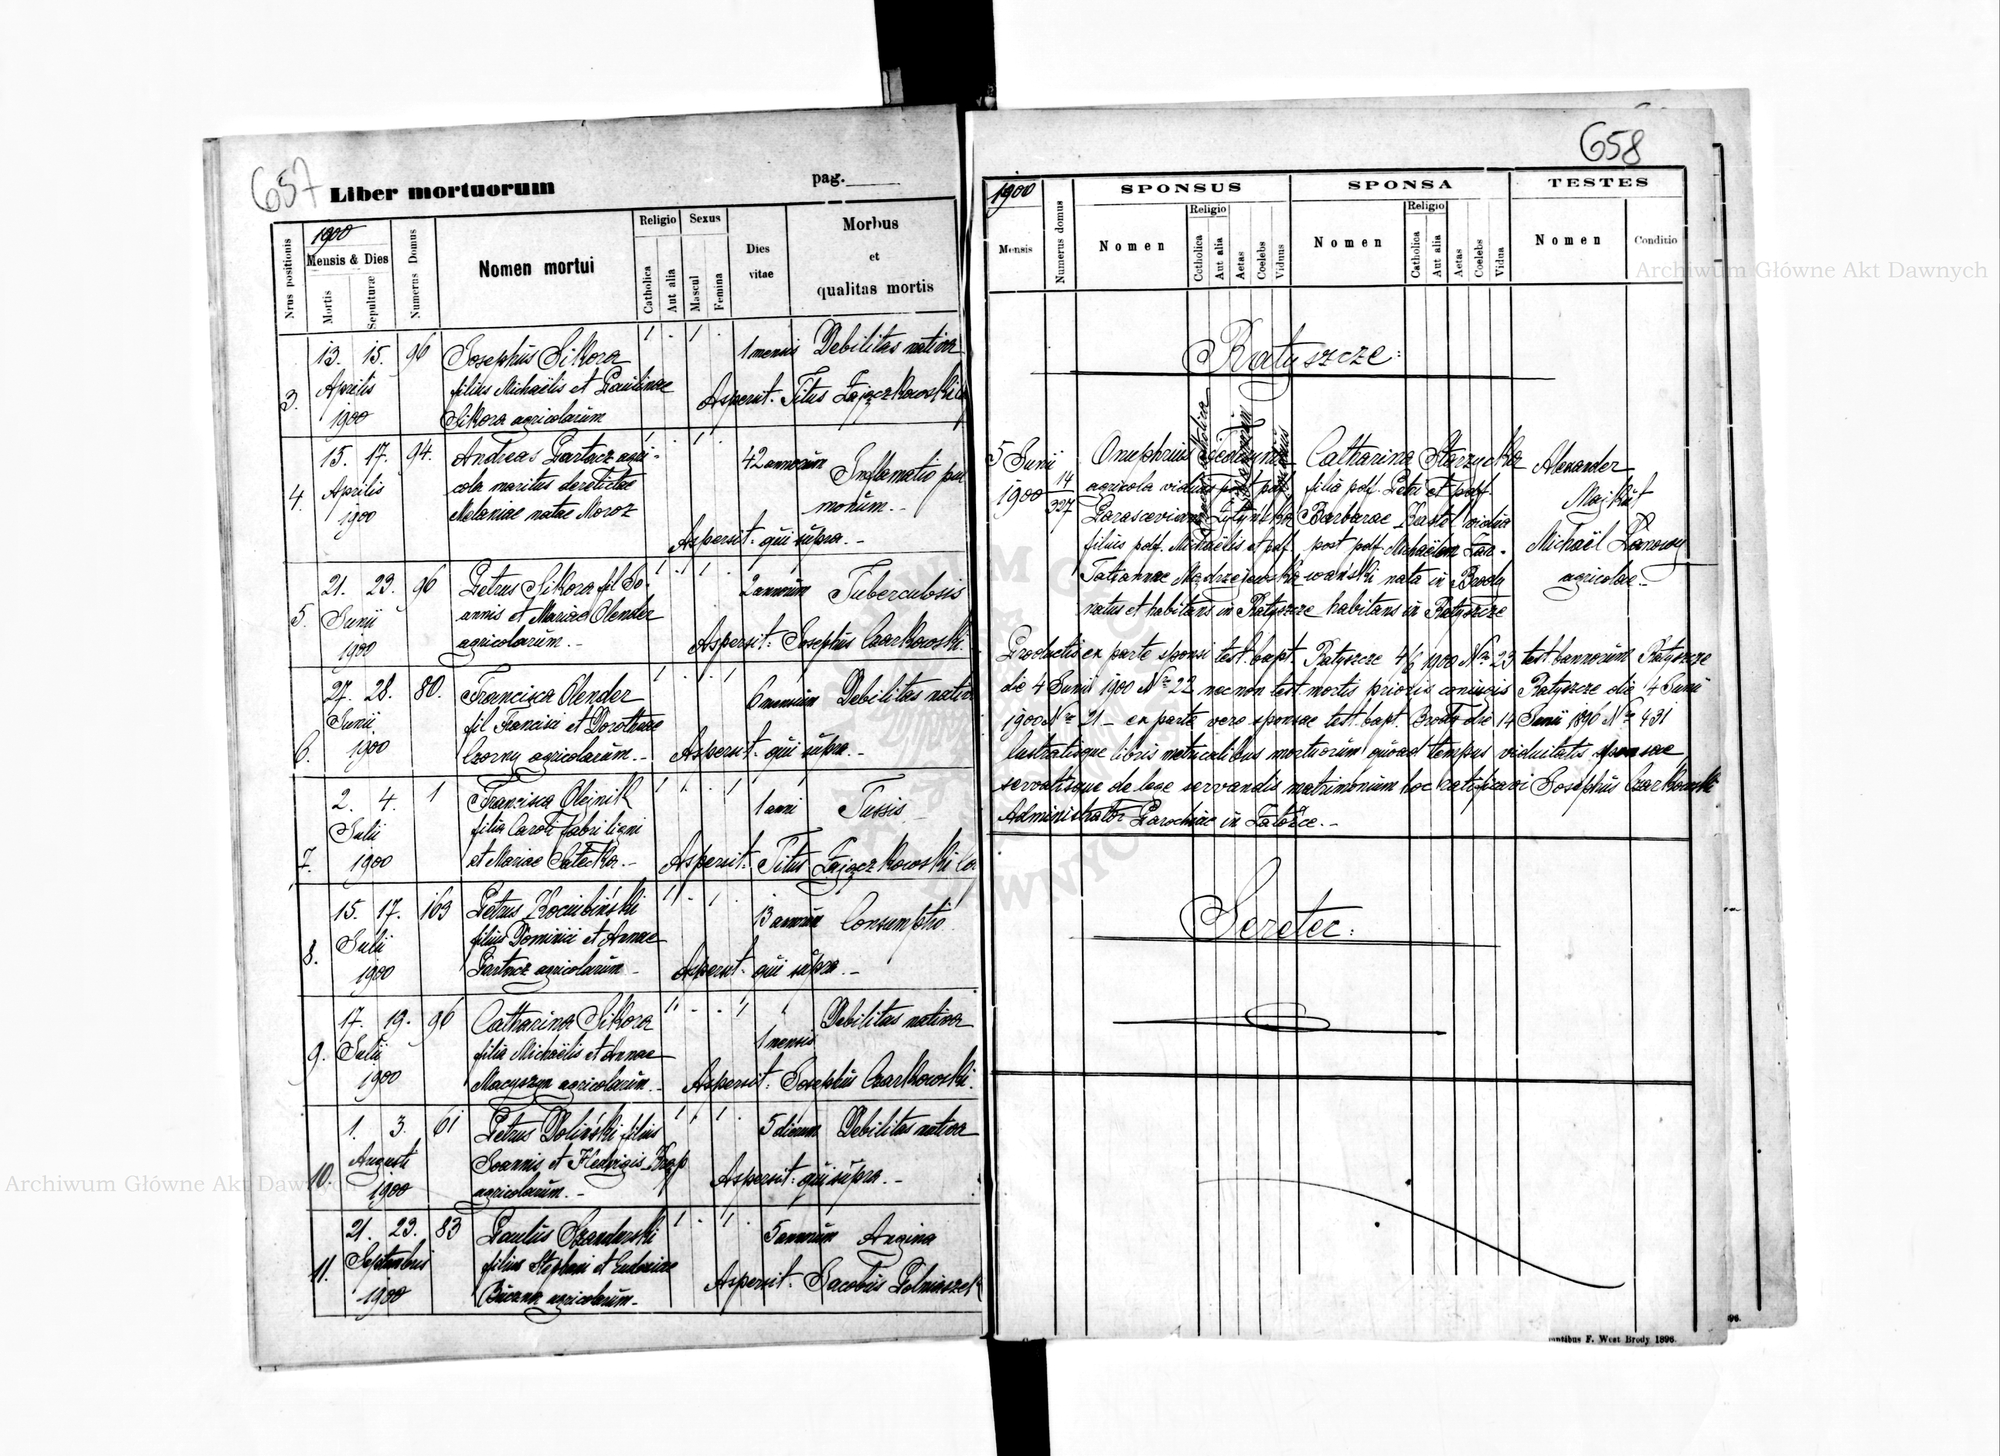 657
Liber mortuorum
pag.
Nrus positionis
1900
Mensis & Dies
Mortis
Sepulturæ
Numerus Domus
Nomen mortui
Religio
Catholica
Aut alia
Sexus
Mascul
Femina
Dies
vitae
Morbus
et
qualitas mortis
3.
13. 15. 96
Aprilis
1900
Josephus Sikora
filius Michaëlis et Paulinae
Sikora agricolarum
1 mensis Debilitas nativa
Aspersit. Titus Zajączkowski
4.
15. 17. 94.
Aprilis
1900
Andreas Partacz agri-
cola maritus derelictae
Melaniae natae Moroz
42 annorum Inflamatio pul
monum.-
Aspersit: qui supra.-
5.
21. 23. 96
Junii
1900
Petrus Sikora fil Jo-
annis et Maria Olender
agricolarum.-
2 annorum Tuberculosis
Aspersit: Josephus Czarkowski.
6.
27. 28. 80.
Junii
1900
Francisca Olender
fil Francisci et Dorotheae
Czorny agricolarum.-
6 mensium Debilitas nativa
Aspersit: qui supra.-
7.
2. 4. 1
Julii
1900
Francisca Olejnik
filia Caroli fabri ligni
et Mariae
1 anni Tussis
Aspersit: Titus Zajączkowski
8.
15. 17. 163
Julii
1900
Petrus Kociubiński
filius Dominici et Annae
Partacz agricolarum-
13 annorum Consumptio
Aspersit: qui supra.-
9.
17. 19. 96
Julii
1900
Catharina Sikora
filia Michaëlis et Annae
Macyszyn agricolarum.-
1 mensis
Debilitas nativa
Aspersit: Josephus Czarkowski.
10.
1. 3. 61
Augusti
1900
Petrus Doliński filius
Joannis et Hedvigis
agricolarum.-
5 dierum Debilitas nativa
Aspersit: qui supra.-
11.
21. 23. 83
Septembris
1900
Paulus
filius Stephani et Eudociae
agricolarum-
5 annorum Angina
Aspersit. Jacobus
658
1900
Mensis
Numerus domus
SPONSUS
Nomen
Religio
Cotholica
Aut alia
Aetas
Coelebs
Viduus
SPONSA
Nomen
Religio
Catholica
Aut alia
Aetas
Coelebs
Vidua
TESTES
Nomen
Conditio
Ratyszcze:
5 Junii
1900
14
327
Onuphrius
agricola viduus post pdf.
Parasceviam
filius pdf. Michaëlis et pdf.
Tatiannae
natus et habitans in Ratyszcze
Catharina Starzycka
filia pdf. Petri et pdf.
Barbarae vidua
post pdf. Michaëlem
nata in Brody
habitans in Ratyszcze
Alexander
Majkut
Michaël
agricolae.-
Productis ex parte sponsi test. bapt. Ratyszcze 4/6 1900 Nro 23 test. bannorum Ratyszcze
die 4 Junii 1900 Nro 22 necnon test. mortis prioris coniugis Ratyszcze die 4 Junii
1900 Nro 21 - ex parte vero sponsae test. bapt. Brody die 14 Junii 1896 Nro 431
lustratisque libris metricalibus mortuorum quoad tempus viduitatis sponsae
servatisque de lege servandis matrimonium hoc ratificavi Josephus Czarkowski
Administrator Parochiae in Załoźce.-
Seretec:
F. West Brody 1896.
Archiwum Główne Akt Dawnych
Archiwum Główne Akt Dawnych